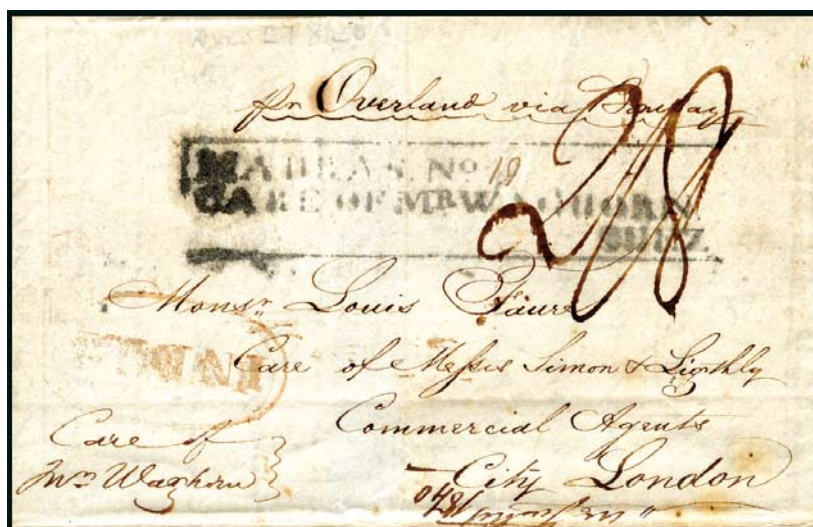 pr Overland via Bombay
MADRAS. No 18
CARE OF MR WAGHORN
SUEZ
2/8
Monsr. Louis Faure
INDIA
Care of Messrs Simon & Lightly
Commercial Agents
Care of
Mr Waghorn
City London